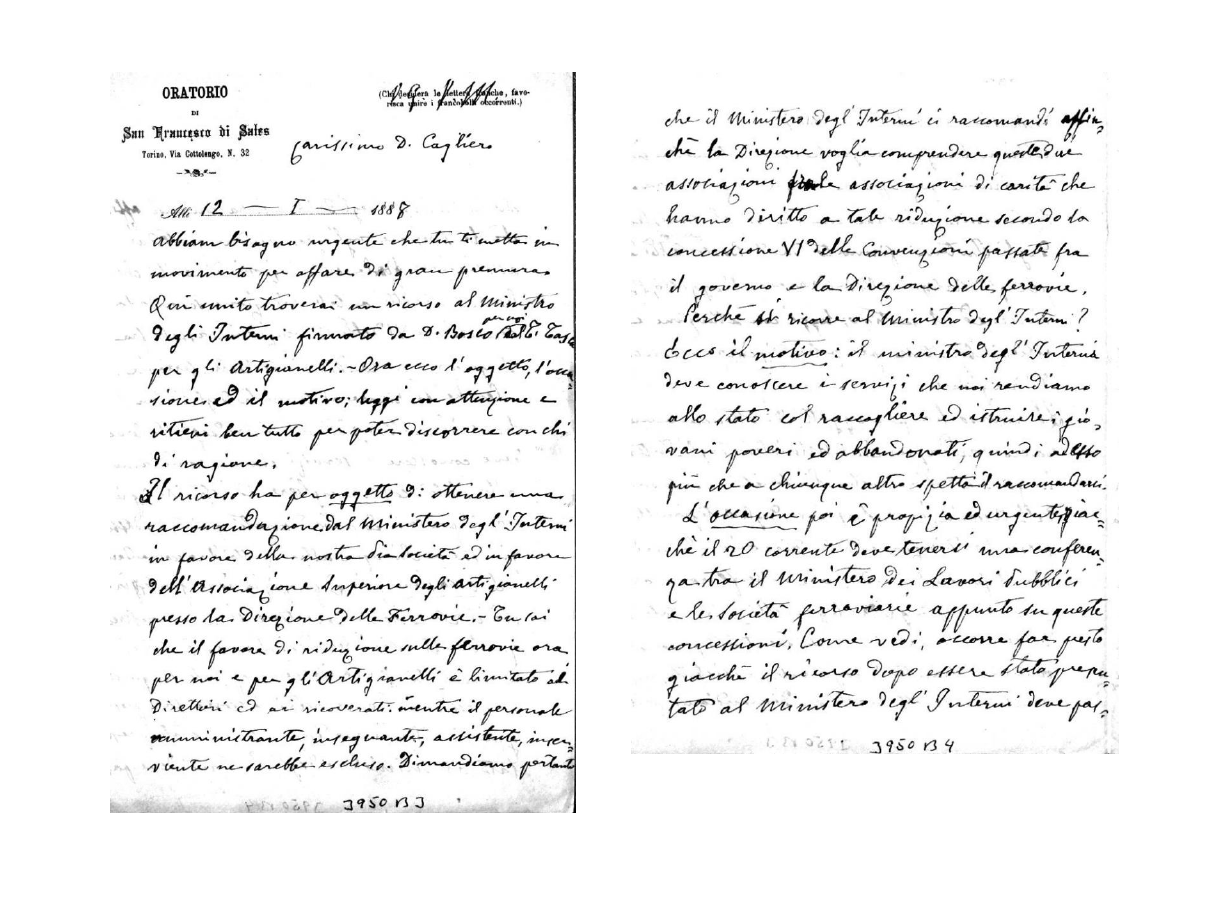 ORATORIO
DI
San Francesco di Sales
Torino, Via Cottolengo, N. 32
(Chi leggerà la lettera, favo-
risca unire i francobolli occorrenti.)
Carissimo D. Cagliero
Addì 12 I 1888
Abbiam bisogno urgente che tu ti metta in
movimento per affare di gran premura.
Qui unito troverai un ricorso al Ministro
degli Interni firmato da D. Bosco per noi dal T.
per gli Artigianelli. - Ora ecco l'oggetto, l'occa-
sione ed il motivo; leggi con attenzione e
ritieni ben tutto per poter discorrere con chi
di ragione.
Il ricorso ha per oggetto di: ottenere una
raccomandazione dal Ministero degl'Interni
in favore della nostra Pia Società ed in favore
dell'Associazione Superiore degli Artigianelli
presso la Direzione delle Ferrovie. - Tu sai
che il favore di riduzione sulle ferrovie ora
per noi e per gli Artigianelli è limitato ai
Direttori ed ai ricoverati mentre il personale
amministrante, insegnante, assistente, inser-
viente ne sarebbe escluso. Dimandiamo pertanto
3950 B 3
che il Ministero degl'Interni ci raccomandi affin-
chè la Direzione voglia comprendere queste due
associazioni fra le associazioni di carità che
hanno diritto a tale riduzione secondo la
concessione VI delle Convenzioni passate fra
il governo e la Direzione delle ferrovie.
Perchè si ricorre al Ministro degl'Interni?
Ecco il motivo: il ministro degl'Interni
deve conoscere i servizi che noi rendiamo
allo stato col raccogliere ed istruire i gio-
vani poveri ed abbandonati, quindi adesso
più che a chiunque altro spetta il raccomandarci.
L'occasione poi è propizia ed urgente, giac-
chè il 20 corrente deve tenersi una conferen-
za tra il Ministero dei Lavori Pubblici
e le Società ferroviarie appunto su queste
concessioni. Come vedi, occorre far presto
giacchè il ricorso dopo essere stato presen-
tato al Ministero degl'Interni deve pas-
3950 B 4